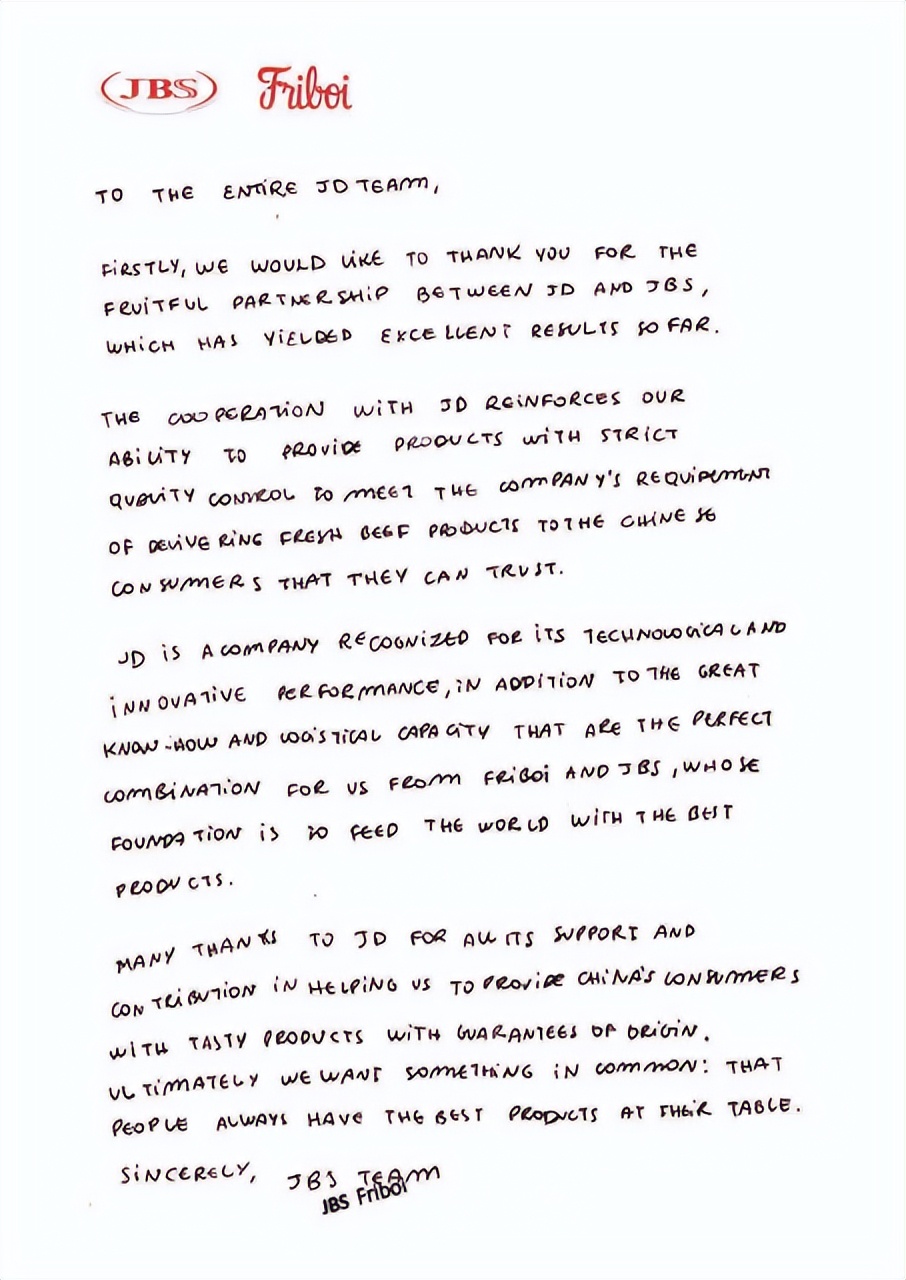 JBS Friboi
TO THE ENTIRE JD TEAM,
FIRSTLY, WE WOULD LIKE TO THANK YOU FOR THE
FRUITFUL PARTNERSHIP BETWEEN JD AND JBS,
WHICH HAS YIELDED EXCELLENT RESULTS SO FAR.
THE COOPERATION WITH JD REINFORCES OUR
ABILITY TO PROVIDE PRODUCTS WITH STRICT
QUALITY CONTROL TO MEET THE COMPANY'S REQUIREMENT
OF DELIVERING FRESH BEEF PRODUCTS TO THE CHINESE
CONSUMERS THAT THEY CAN TRUST.
JD IS A COMPANY RECOGNIZED FOR ITS TECHNOLOGICAL AND
INNOVATIVE PERFORMANCE, IN ADDITION TO THE GREAT
KNOW-HOW AND LOGISTICAL CAPACITY THAT ARE THE PERFECT
COMBINATION FOR US FROM FRIBOI AND JBS, WHOSE
FOUNDATION IS TO FEED THE WORLD WITH THE BEST
PRODUCTS.
MANY THANKS TO JD FOR ALL ITS SUPPORT AND
CONTRIBUTION IN HELPING US TO PROVIDE CHINA'S CONSUMERS
WITH TASTY PRODUCTS WITH GUARANTEES OF ORIGIN.
ULTIMATELY WE WANT SOMETHING IN COMMON: THAT
PEOPLE ALWAYS HAVE THE BEST PRODUCTS AT THEIR TABLE.
SINCERELY, JBS TEAM
JBS Friboi